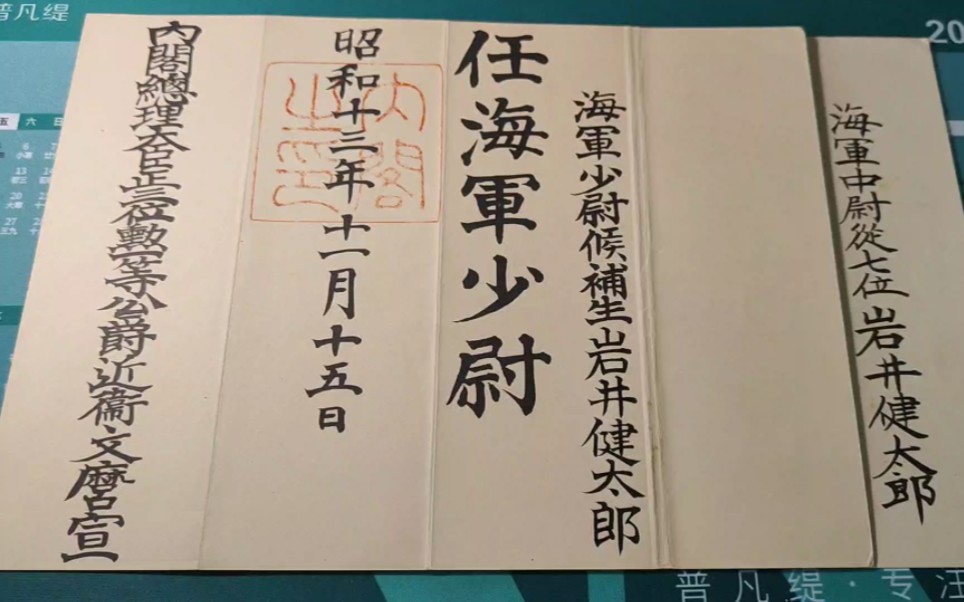 海軍中尉從七位岩井健太郎
海軍少尉候補生岩井健太郎
任海軍少尉
昭和十三年十一月十五日
內閣之印
內閣總理大臣正三位勲一等公爵近衞文麿宣
普凡缇
20
五 六 日
普凡缇·专注